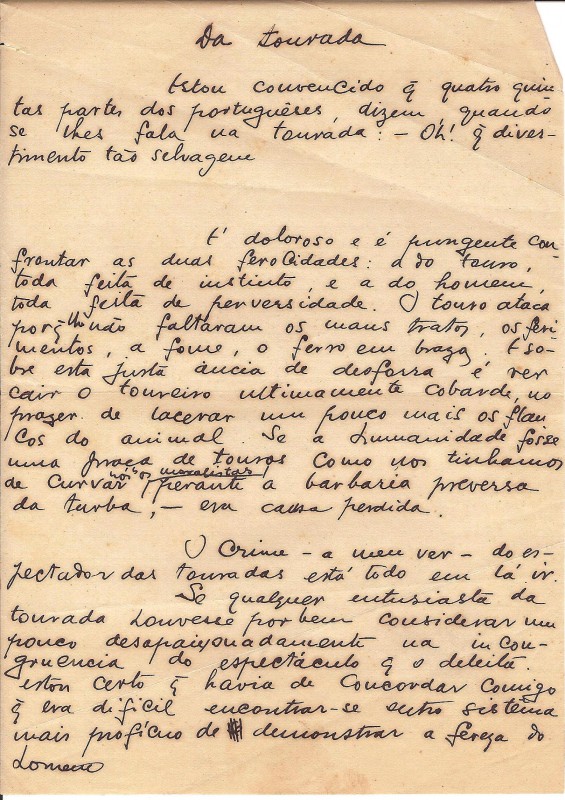 Da tourada
Estou convencido q̃ quatro quin-
tas partes dos portuguêses, dizem, quando
se lhes fala na tourada: - Oh! q̃ diver-
timento tão selvagem
E' doloroso e é pungente con-
frontar as duas ferocidades: a do touro,
toda feita de instinto, e a do homem,
toda feita de perversidade. O touro ataca
porq̃ lhe não faltaram os maus tratos, os feri-
mentos, a fome, o ferro em braza, E so-
bre esta justa ância de desforra é ver
cair o toureiro ultimamente cobarde, no
prazer de lacerar um pouco mais os flan-
cos do animal. Se a humanidade fosse
uma praça de touros como nos tinhamos
de curvar nós os moralistas perante a barbaria preversa
da turba, - era causa perdida.
O crime - a meu ver - do es-
pectador das touradas está todo em lá ir.
Se qualquer entusiasta da
tourada houvesse por bem considerar um
pouco desapaixonadamente na incon-
gruencia do espectáculo q̃ o deleita
estou certo q̃ havia de concordar comigo
q̃ era dificil encontrar-se outro sistêma
mais profícuo de demonstrar a fereza do
homem